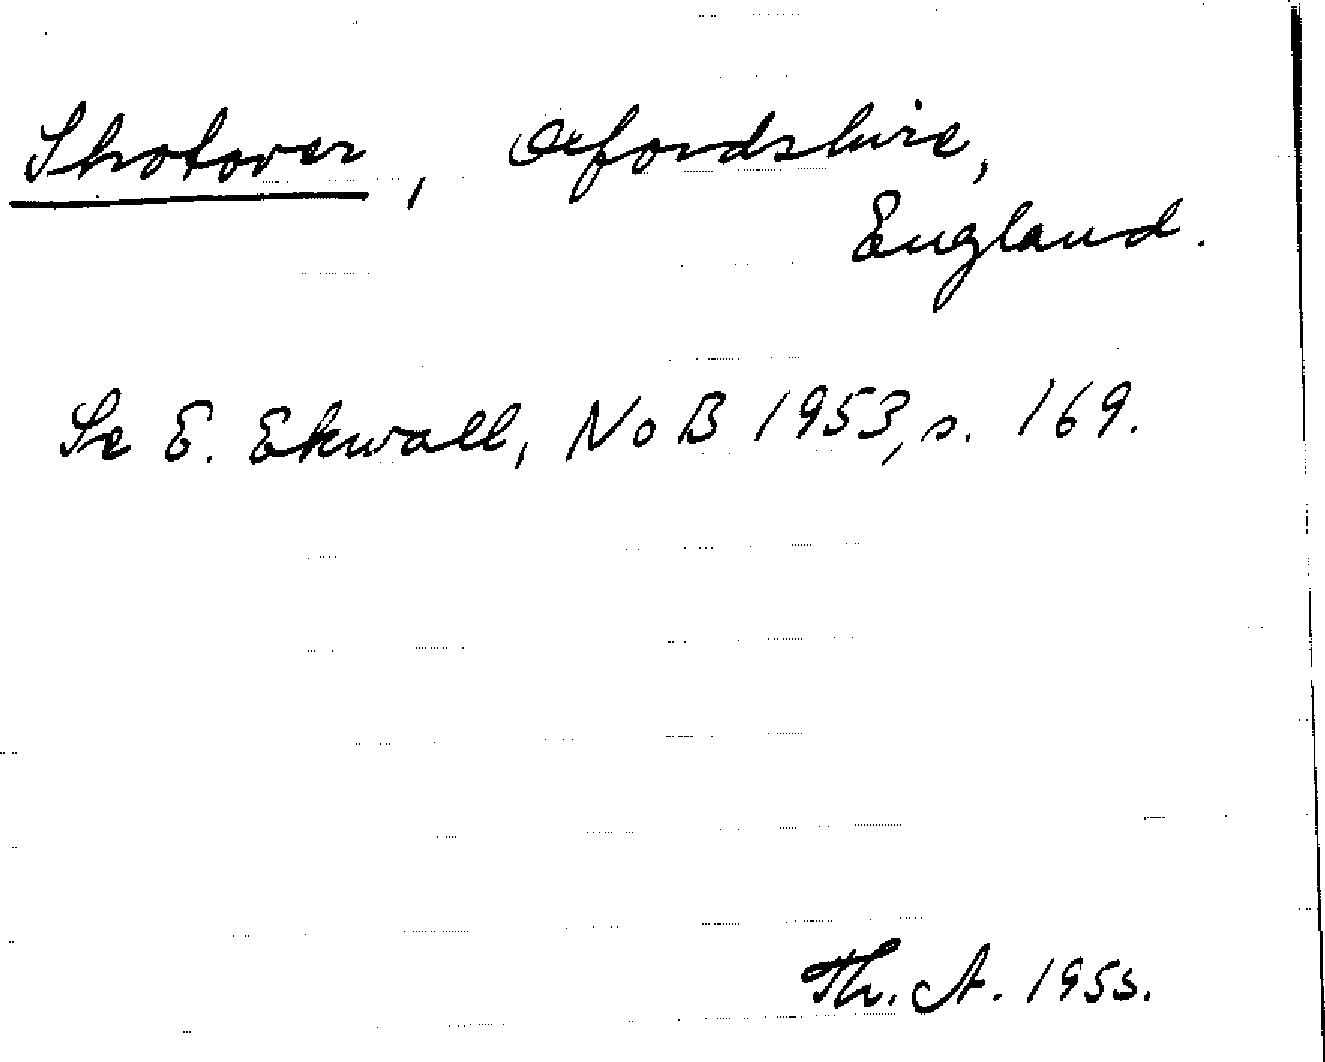 Shotover, Oxfordshire,
England.
Se E. Ekwall, NoB 1953, s. 169.
Th. A. 1955.